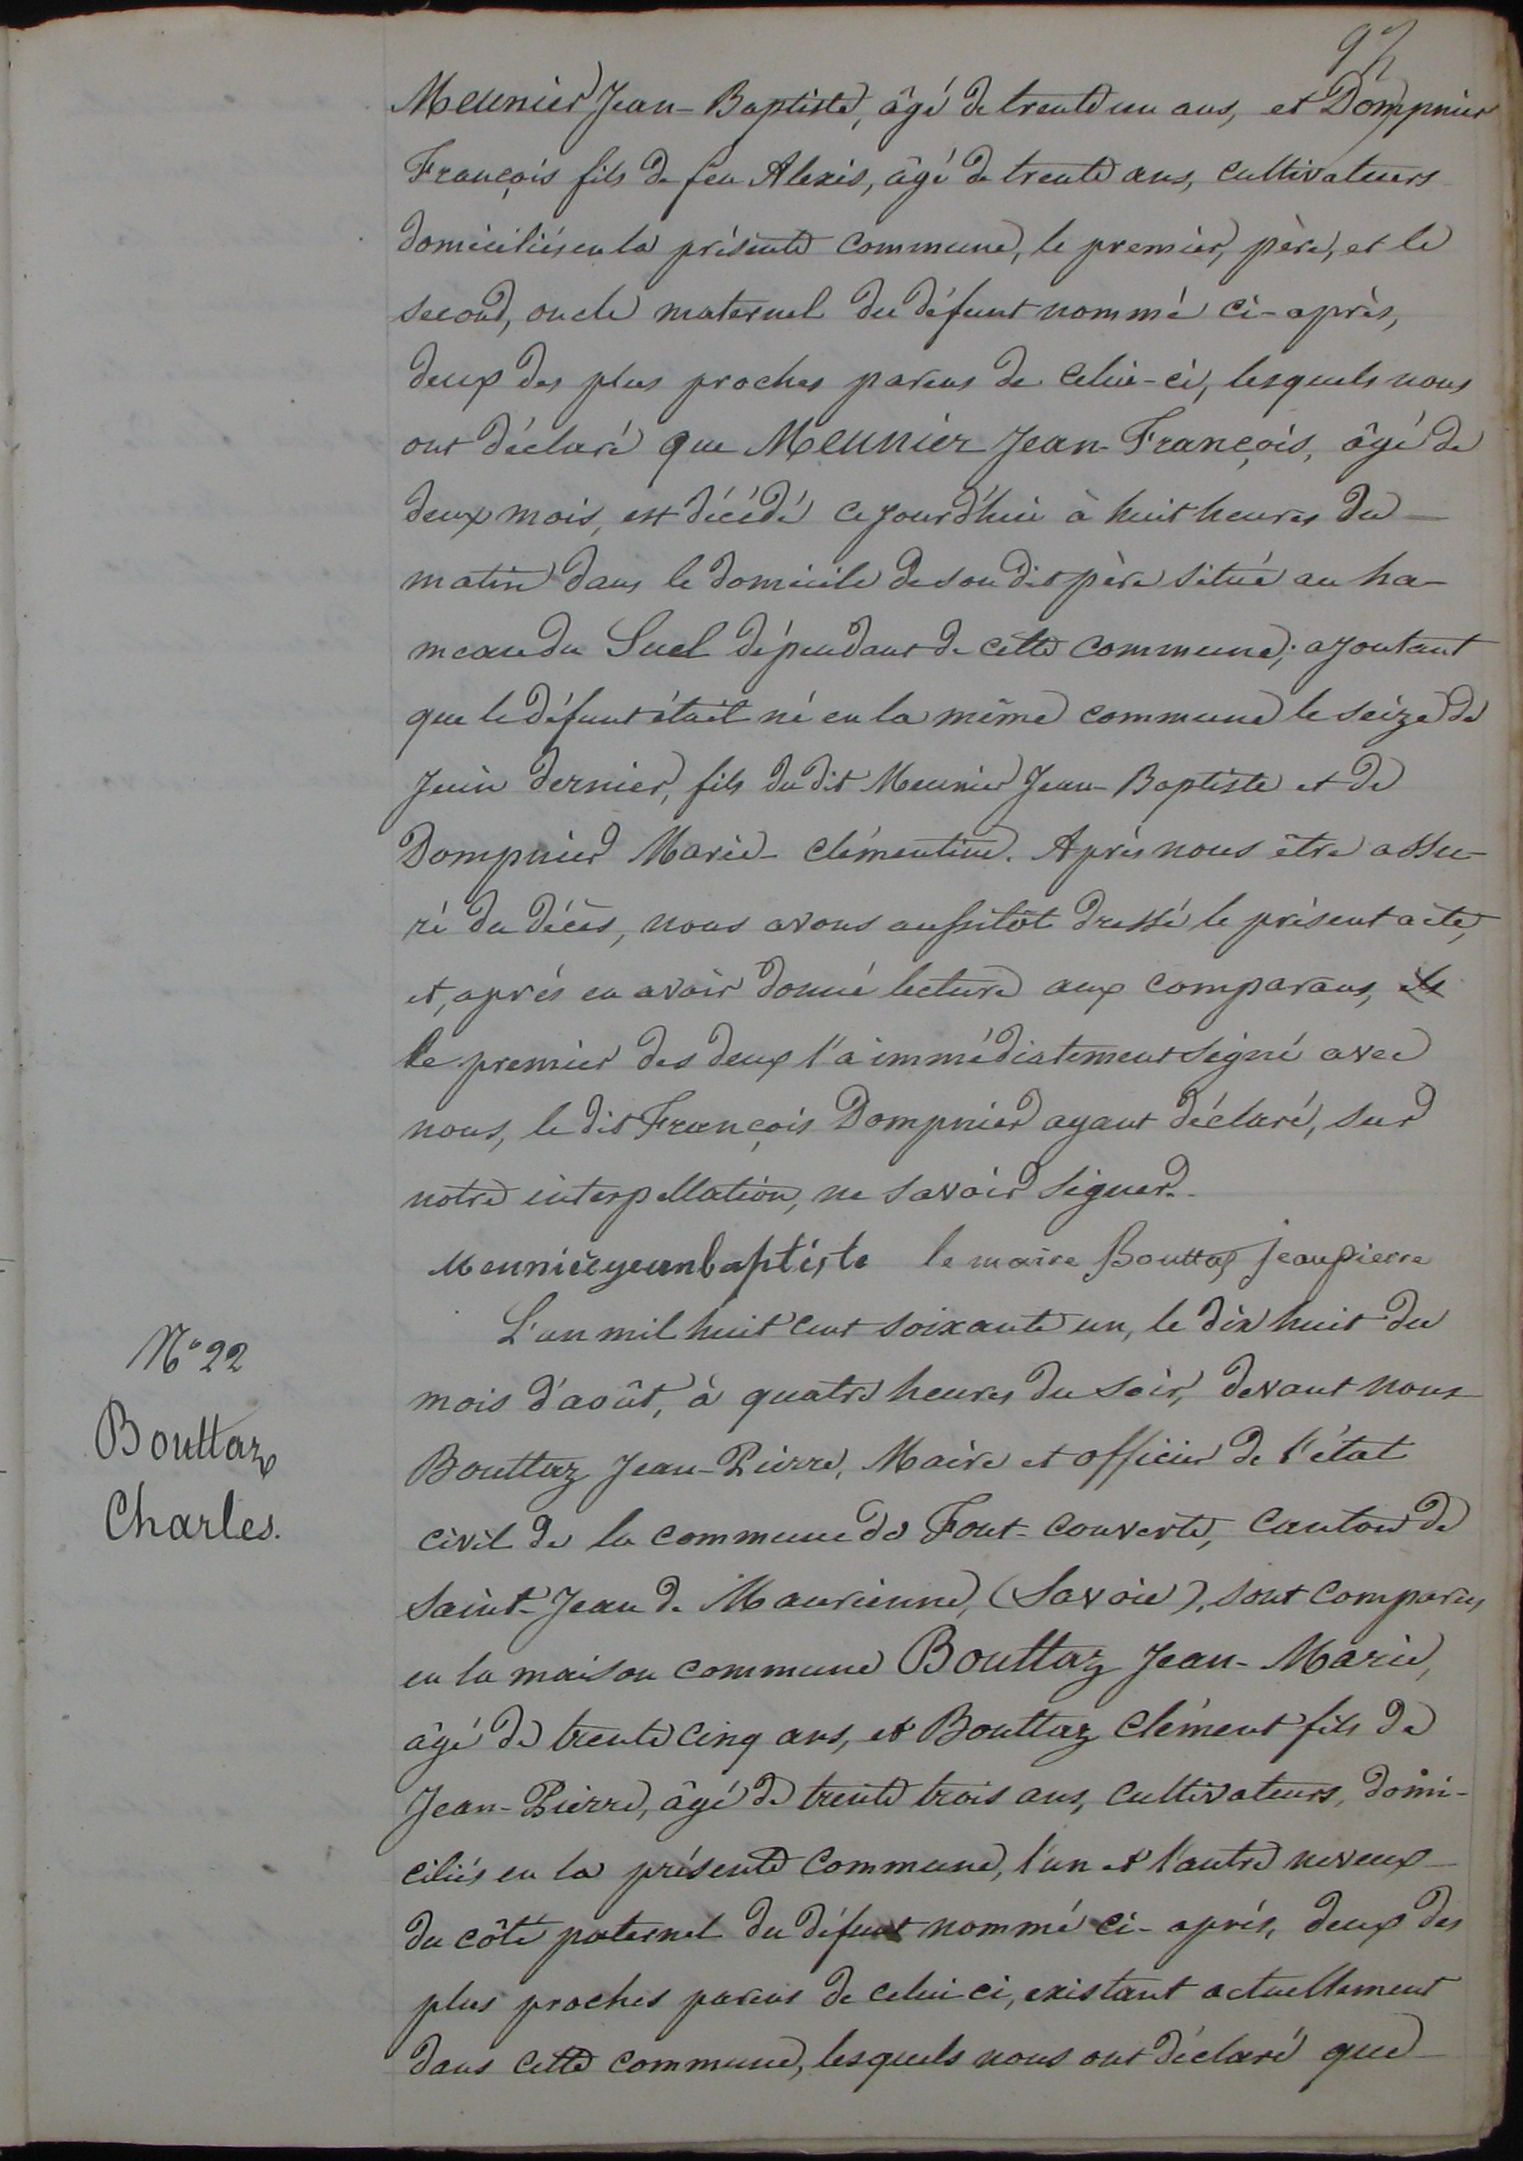 Meunier Jean-Baptiste, âgé de trente un ans, et Dompnier
François fils de feu Alexis, âgé de trente ans, cultivateurs
domiciliés en la présente commune, le premier, père, et le
second, oncle maternel du défunt nommé ci-après,
deux des plus proches parens de celui-ci, lesquels nous
ont déclaré que Meunier Jean-François, âgé de
deux mois, est décédé cejourd'hui à huit heures du
matin dans le domicile de son dit père situé au ha-
meau du Suel dépendant de cette commune; ajoutant
que le défunt était né en la même commune le seize de
Juin dernier, fils du dit Meunier Jean-Baptiste et de
Dompnier Marie-Clémentine. Après nous être assu-
ré du décès, nous avons aussitôt dressé le présent acte,
et, après en avoir donné lecture aux comparans,
le premier des deux l'a immédiatement signé avec
nous, le dit François Dompnier ayant déclaré, sur
notre interpellation, ne savoir signer.
Meunier yeanbaptiste le maire Bouttaz jeanpierre
N° 22
Bouttaz
Charles.
L'an mil huit cent soixante un, le dix huit du
mois d'août, à quatre heures du soir, devant nous
Bouttaz Jean-Pierre, Maire et officier de l'état
civil de la commune de Font-couverte, Canton de
Saint-Jean de Maurienne, (Savoie), sont comparus
en la maison commune Bouttaz Jean-Marie,
âgé de trente cinq ans, et Bouttaz Clément fils de
Jean-Pierre, âgé de trente trois ans, cultivateurs, domi-
ciliés en la présente commune, l'un et l'autre neveux
du côté paternel du défunt nommé ci-après, deux des
plus proches parens de celui ci, existant actuellement
dans cette commune, lesquels nous ont déclaré que